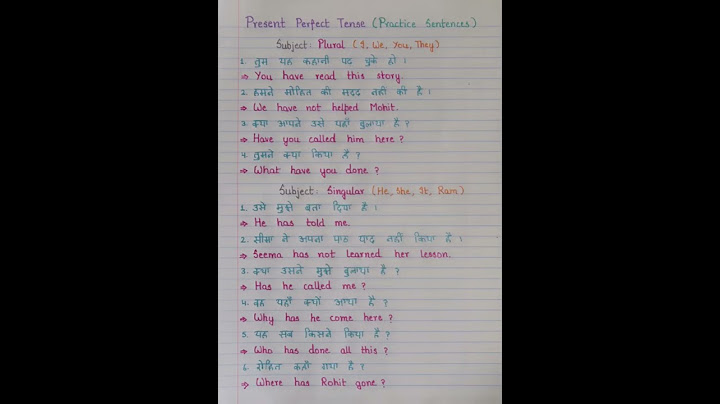 Present Perfect Tense (Practice Sentences)
Subject: Plural (I, We, You, They)
1. तुम यह कहानी पढ़ चुके हो ।
⇒ You have read this story.
2. हमने मोहित की मदद नहीं की है ।
⇒ We have not helped Mohit.
3. क्या आपने उसे यहाँ बुलाया है ?
⇒ Have you called him here ?
4. तुमने क्या किया है ?
⇒ What have you done ?
Subject: Singular (He, She, It, Ram)
1. उसे मुझे बता दिया है ।
⇒ He has told me.
2. सीमा ने अपना पाठ याद नहीं किया है ।
⇒ Seema has not learned her lesson.
3. क्या उसने मुझे बुलाया है ?
⇒ Has he called me ?
4. वह यहाँ क्यों आया है ?
⇒ Why has he come here ?
5. यह सब किसने किया है ?
⇒ Who has done all this ?
6. रोहित कहाँ गया है ?
⇒ Where has Rohit gone ?